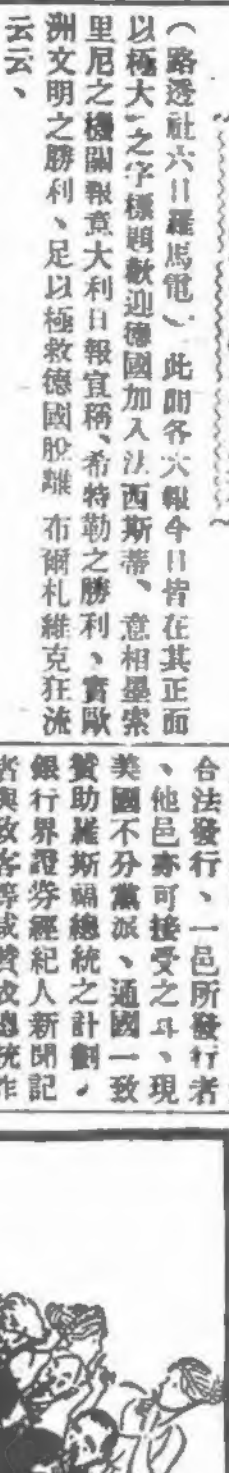 （路透社六日羅馬電）此間各大報今日皆在其正面
以極大之字標題歡迎德國加入法西斯蒂、意相墨索
里尼之機關報意大利日報宣稱、希特勒之勝利、實歐
洲文明之勝利、足以極救德國脫離 布爾札維克狂流
云云、
合法發行、一邑所發行者
、他邑亦可接受之耳、現
美國不分黨派、通國一致
贊助羅斯福總統之計劃、
銀行界證券經紀人新聞記
者與政客等咸贊成總統作